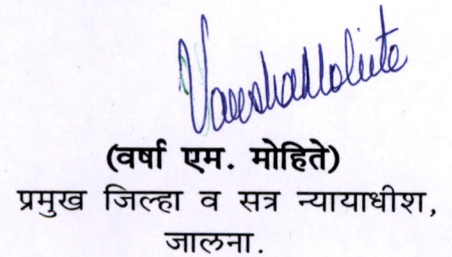 VarshaMohite
(वर्षा एम. मोहिते)
प्रमुख जिल्हा व सत्र न्यायाधीश,
जालना.